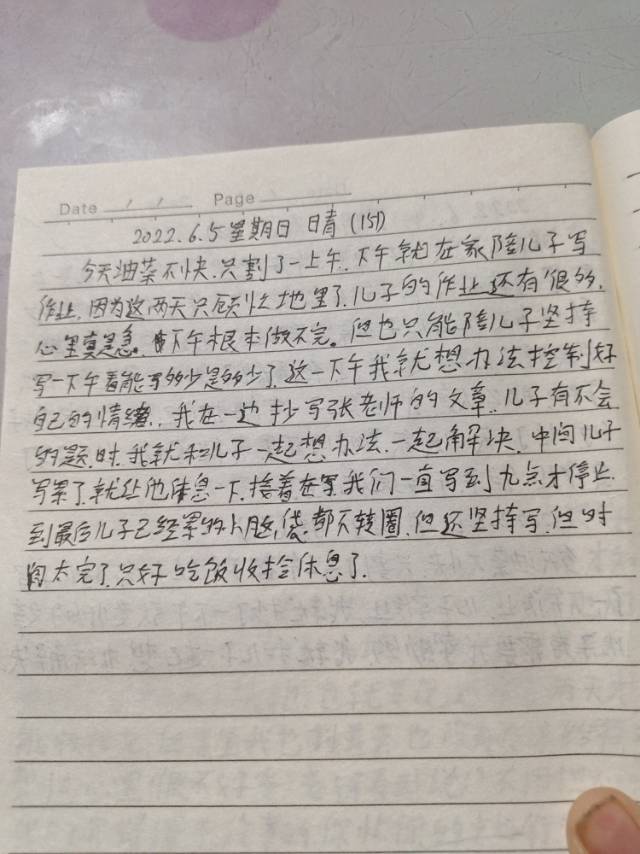 Date / / Page
2022.6.5 星期日 日青 (151)
今天油菜不快.只割了一上午.下午就在家陪儿子写
作业,因为这两天只顾忙地里了.儿子的作业还有很多.
心里真是急.下午根本做不完。但也只能陪儿子坚持
写一下午看能写多少是多少了.这一下午我就想办法控制好
自己的情绪.我在一边抄写张老师的文章.儿子有不会
的题.时.我就和儿子一起想办法.一起解决.中间儿子
写累了就让他休息一下.接着在写.我们一直写到九点才停止.
到最后儿子已经累的小脑袋都不转圈.但还坚持写.但时
间太完了.只好吃饭收拾休息了.